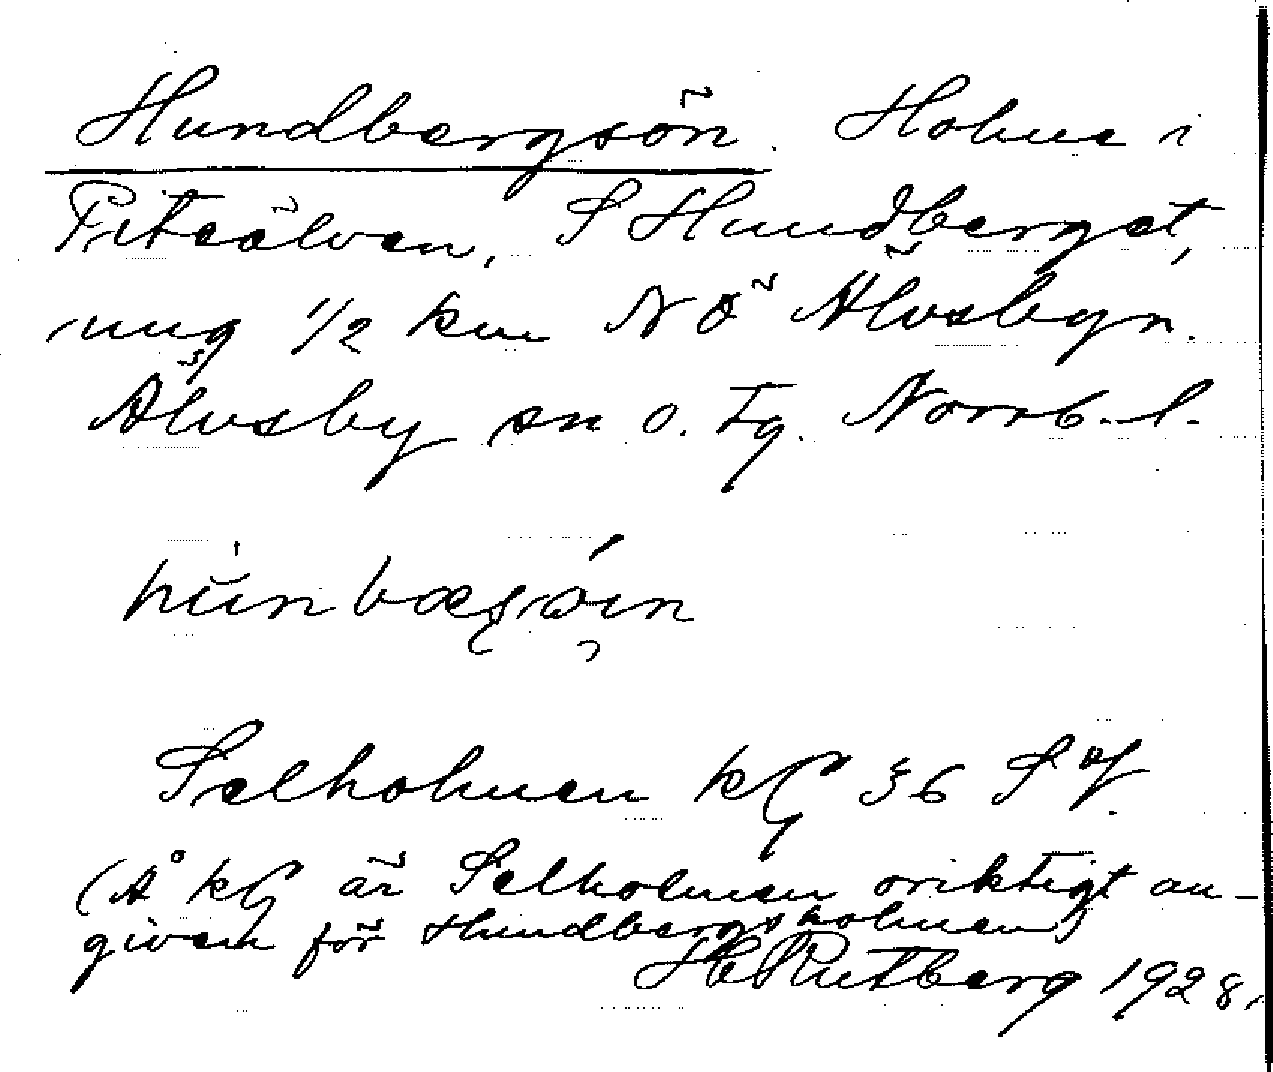 Hundbergsön. Holme i
Piteälven, S Hundberget,
ung 1/2 km NÖ Älvsbyn.
Älvsby sn o. tg. Norrb. l.
Selholmen kG 36 S
(Å kG är Selholmen oriktigt an-
given för Hundbergsholmen)
H Rutberg 1928.